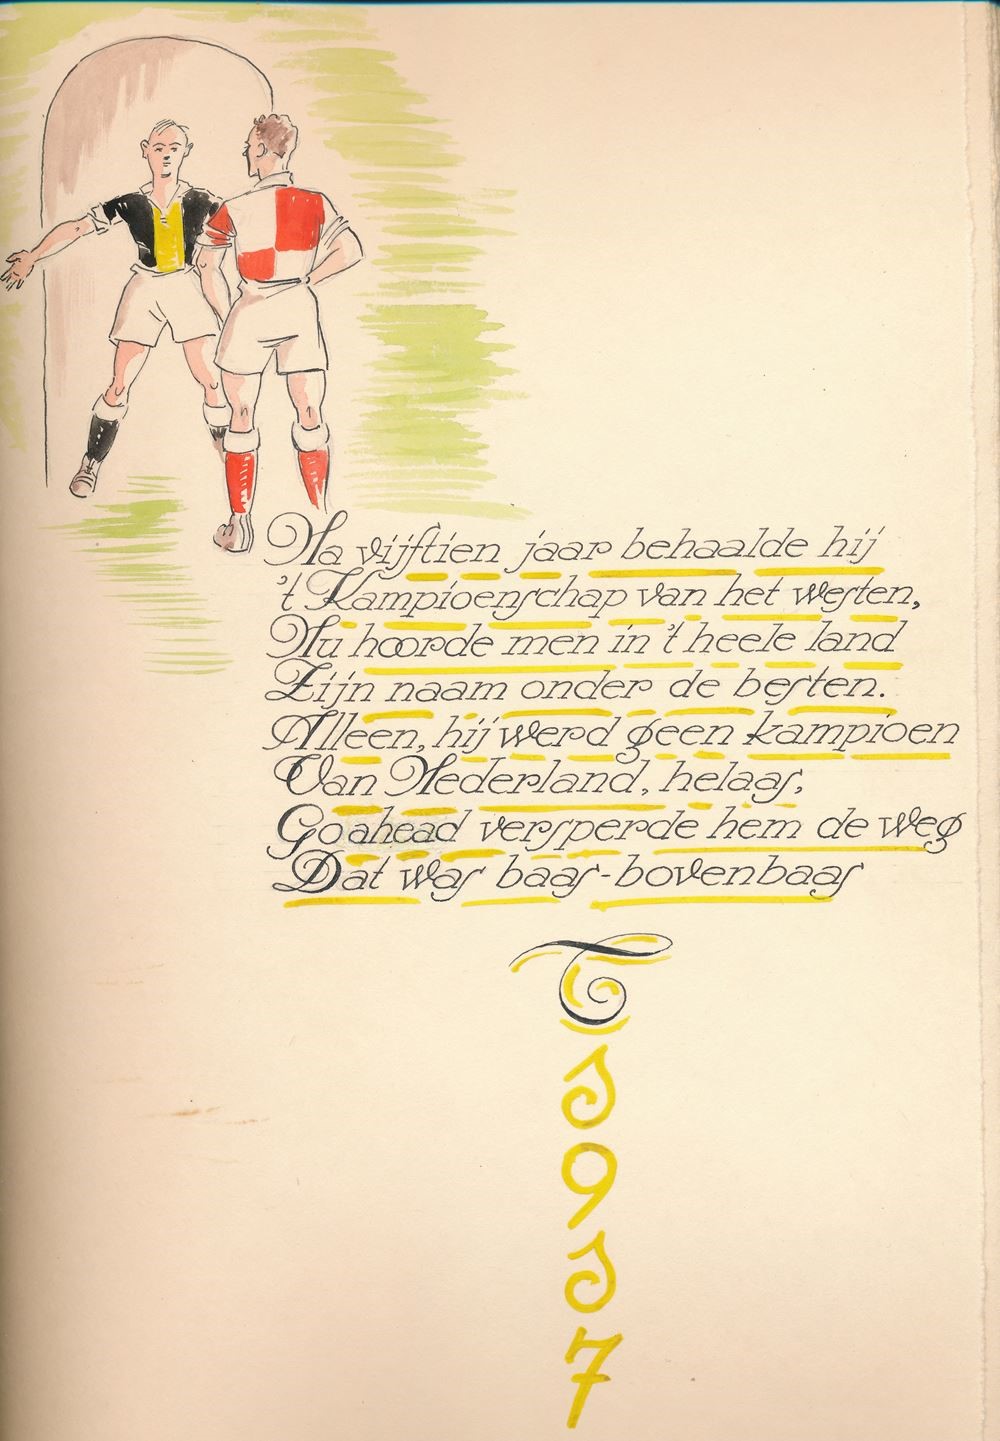 Na vijftien jaar behaalde hij
't Kampioenschap van het westen,
Nu hoorde men in 't heele land
Zijn naam onder de besten.
Alleen, hij werd geen kampioen
Van Nederland, helaas,
Go ahead versperde hem de weg
Dat was baas-bovenbaas
T
1917